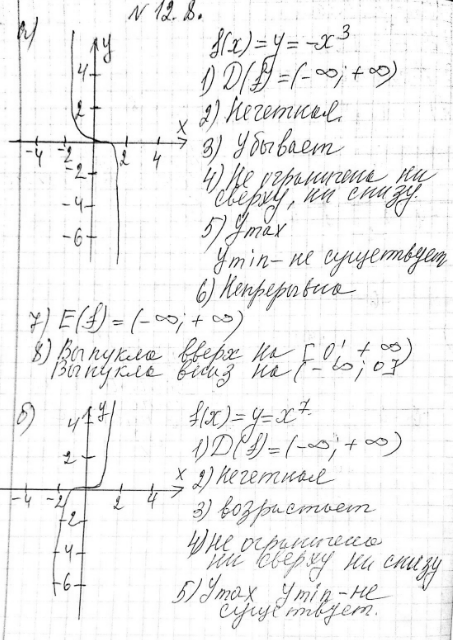 N 12.8.
а)
f(x) = y = -x³
1) D(f) = (-∞; +∞)
2) Нечетная.
3) Убывает
4) Не ограничена ни
сверху, ни снизу.
5) Yмах
Ymin - не существует
6) Непрерывна
y
4
2
x
-4
-2
2
4
-2
-4
-6
7) E(f) = (-∞; +∞)
8) Выпукла вверх на [0; +∞)
Выпукла вниз на (-∞; 0]
б)
f(x) = y = x⁷
1) D(f) = (-∞; +∞)
2) Нечетная
3) возрастает
4) Не ограничена
ни сверху ни снизу
5) Yмах Ymin - не
существует.
4
y
2
x
-4
-2
2
4
-2
-4
-6